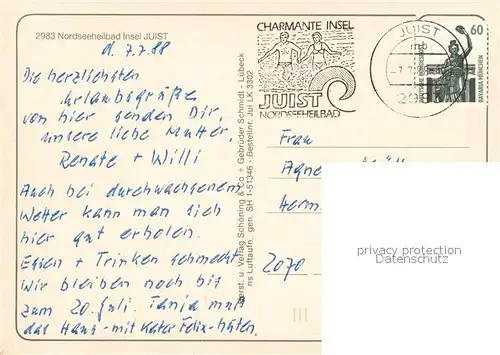 2983 Nordseeheilbad Insel JUIST
d. 7.7.88
Die herzlichsten
Urlaubsgrüße
von hier senden Dir,
unsere liebe Mutter,
Renate + Willi
Auch bei durchwachsenem
Wetter kann man sich
hier gut erholen.
Essen + Trinken schmeckt.
Wir bleiben noch bis
zum 20. Juli. Tanja muß
das Haus - mit Kater Felix - hüten.
Verlag Schöning & Co + Gebrüder Schmidt - Lübeck
Luftaufn. gen. SH 1-51346 - Bestellnr. Jui LK 3302
CHARMANTE INSEL
JUIST
NORDSEEHEILBAD
JUIST
60
BAVARIA MÜNCHEN
Frau
Herm.
2070
privacy protection
Datenschutz